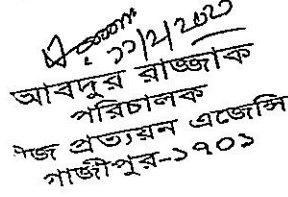 ১১/২/২০২০
আবদুর রাজ্জাক
পরিচালক
বীজ প্রত্যয়ন এজেন্সি
গাজীপুর-১৭০১